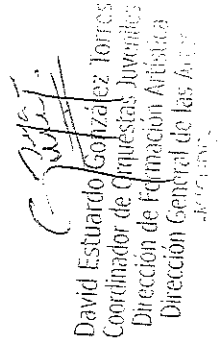 David Estuardo González Torres
Coordinador de Orquestas Juveniles
Dirección de Formación Artística
Dirección General de las Artes